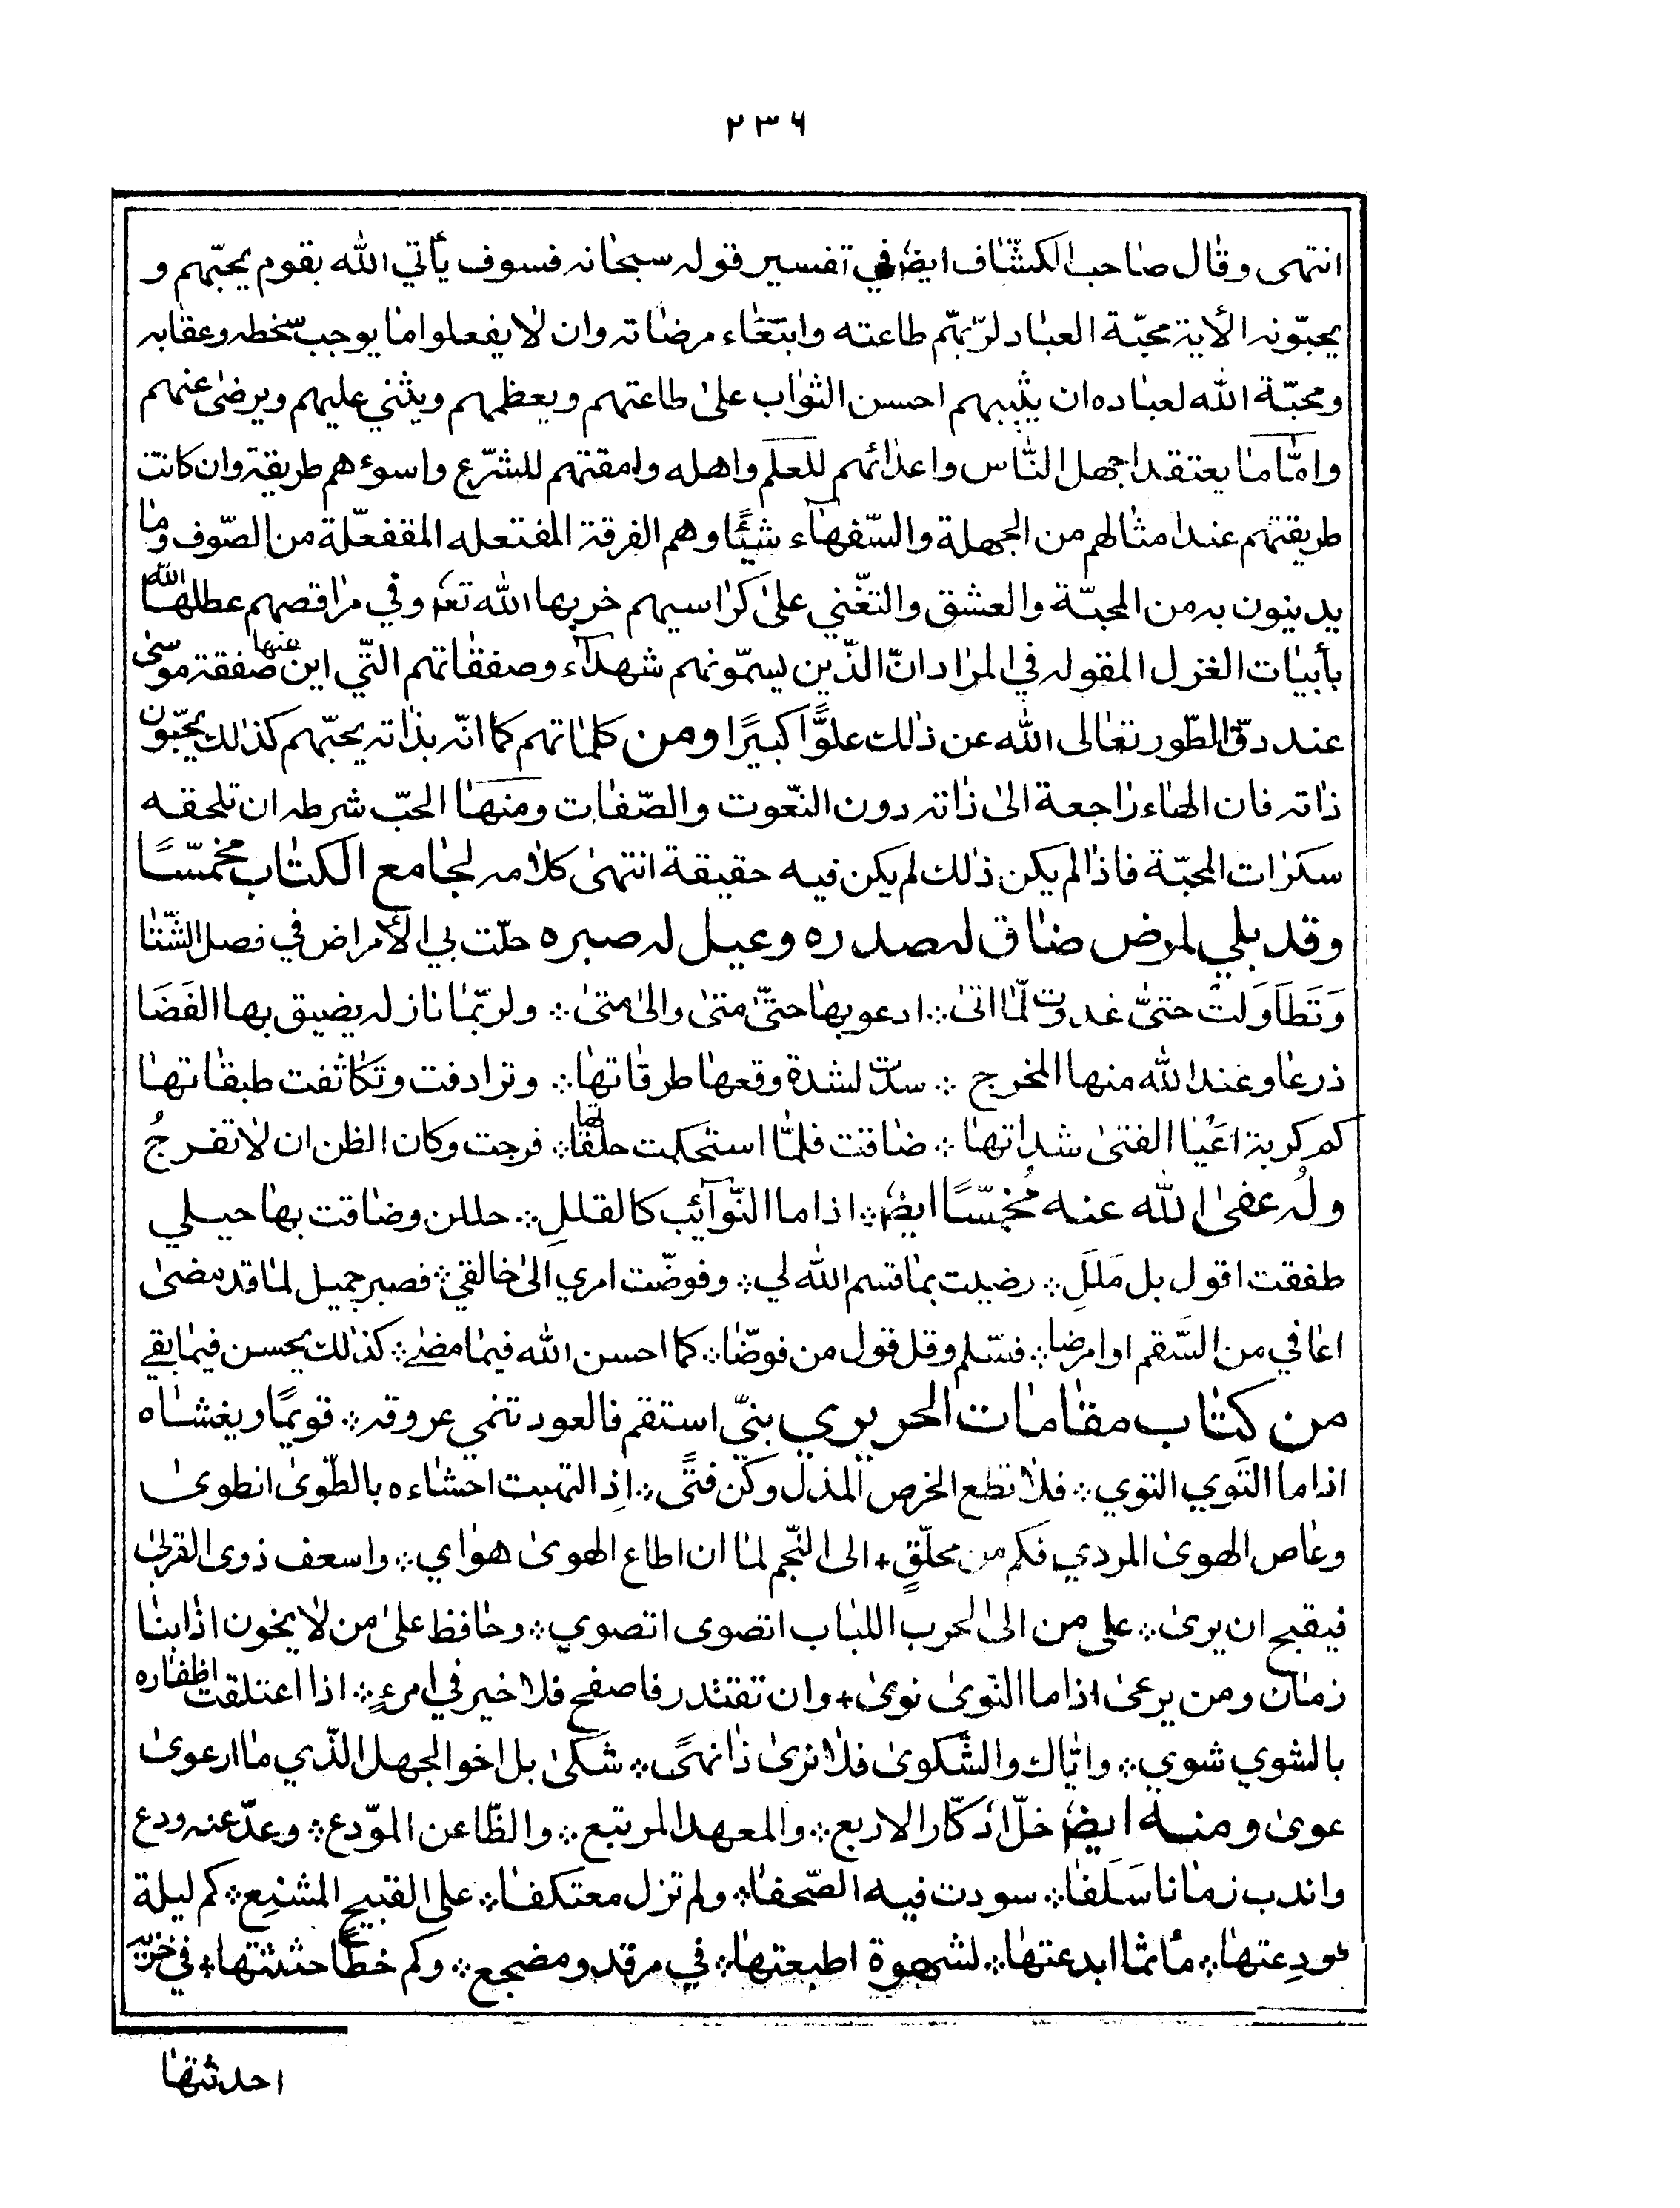 ٢٣٦
انتهى وقال صاحب الكشّاف ايضً في تفسير قوله سبحانه فسوف يأتي الله بقوم يحبّهم و
يحبّونه الأية محبّة العباد لربّهم طاعته وابتغاء مرضاته وان لا يفعلوا ما يوجب سخطه وعقابه
ومحبّة الله لعباده ان يثيبهم احسن الثواب على طاعتهم ويعظمهم ويثني عليهم ويرضى عنهم
وامّا ما يعتقد اجهل النّاس واعدائهم للعلم واهله وامقتهم للشرّع واسوءهم طريقة وان كانت
طريقتهم عند امثالهم من الجهلة والسّفهاء شيئًا وهم الفرقة المفتعله المقفعّلة من الصّوف وما
يدينون به من المحبّة والعشق والتغّني على كراسيهم خربها الله تعم وفي مراقصهم عطلها الله
بأبيات الغزل المقوله في المراد انّ الذّين يسمّونهم شهدآء وصفقاتهم التّي اين عنها صفقة موسى
عند دقّ الطّور تعالى الله عن ذلك علوًّا كبيرًا ومن كلماتهم كما انّه بذاته يحبّهم كذلك يحبّون
ذاته فان الهاء راجعة الى ذاته دون النّعوت والصّفات ومنها الحبّ شرطه ان تلحقه
سكرات المحبّة فاذا لم يكن ذلك لم يكن فيه حقيقة انتهى كلامه لجامع الكتاب مخمّسًا
وقد بلي لمرض ضاق له صدره وعيل له صبره حلّت بي الأمراض في فصل الشّتا
وَتَطَاوَلت حتىّ غدوت لّما اتى ۞ ادعو بها حتّى متى والى متى ۞ ولربّما نازله يضيق بها الفَضَا
ذرعا وعند الله منها المخرج ۞ سدّت لشدة وقعها طرقاتها ۞ وترادفت وتكاثفت طبقاتها
كم كربة اعْيَا الفتى شداتها ۞ ضاقت فلمّا استحكمت حلقاتها ۞ فرجت وكان الظن ان لا تفرجُ
ولُه عفى الله عنه مُخمّسًا ايضً ۞ اذا ما النّوآئب كالقللِ ۞ حللن وضاقت بها حيلي
طفقت اقول بل مَللَِ ۞ رضيت بما قسم الله لي ۞ وفوضّت امري الى خالقي ۞ فصبر جميل لما قد مضى
اعافي من السَّقم او امرضا ۞ فسّلم وقل قول من فوضّا ۞ كما احسن الله فيما مضى ۞ كذلك يحسن فيما بقي
من كتاب مقامات الحريري بنيّ استقم فالعود تنمي عروقه ۞ قويمًا ويغشاه
اذا ما التَوي التوي ۞ فلا تطع الحرص المذلّ وكن فتًى ۞ اذِ التهبت احشاءه بالطّوى انطوى
وعاص الهوى المردي فكم من محلّقٍ + الى النّجم لما ان اطاع الهوى هواي ۞ واسعف ذوى القربى
فيقبح ان يرى ۞ على من الى الحرب اللباب انضوى انضوي ۞ وحافظ على من لا يخون اذا بنا
زمان ومن يرعى اذا ما النّوى نوى + وان تقتدر فاصفح فلا خير في امرءٍ ۞ اذا اعتلقت اظفاره
بالشوي شوي ۞ وايّاك والشّكوى فلا نرى ذا نهىً ۞ شَكى بل اخو الجهل الذّي ما ارعوى
عوى ومنه ايضً خلّ ادّكار الاربع ۞ والمعهد المرتبع ۞ والظّاعن المودّع ۞ وعدّ عنه ودع
واندب زمانا سَلَفا ۞ سودت فيه الصّحفا ۞ ولم تزل معتكفا ۞ على القبيح المشنِع ۞ كم ليلة
عودِعتها ۞ مأثما ابدعتها ۞ لشهوة اطبعتها ۞ في مرقد ومضجع ۞ وكم خطًا حثثتها ۞ في خزية
احدثتها